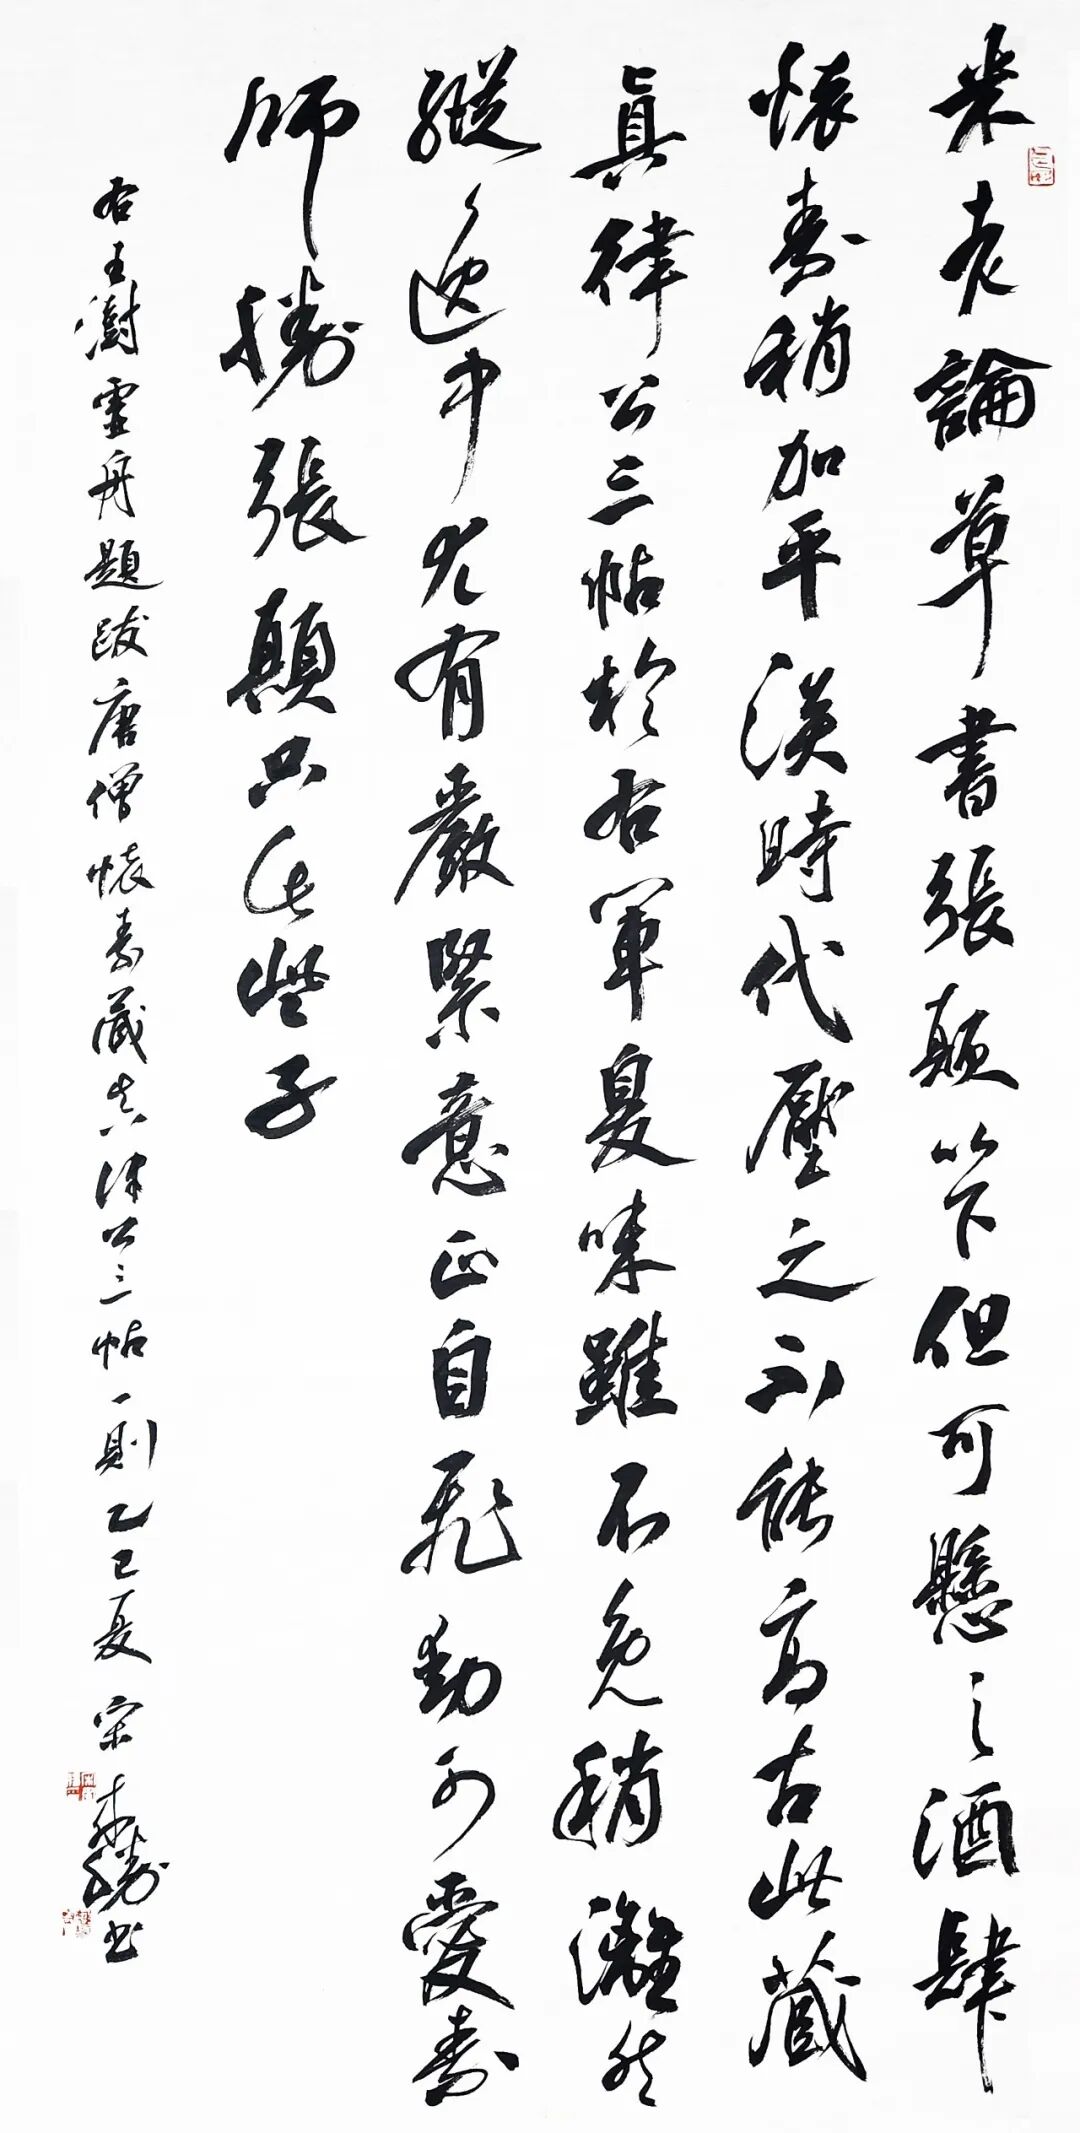 米老論草書張颠以下但可懸之酒肆
懷素稍加平淡時代壓之不能高古此藏
真律公三帖於右軍臭味雖不免稍灕然
縱逸中尤有嚴緊意正自飛動可愛素
師勝張顛只在些子
右王澍虛舟題跋唐僧懷素藏真律公三帖一則乙巳夏宋勝書